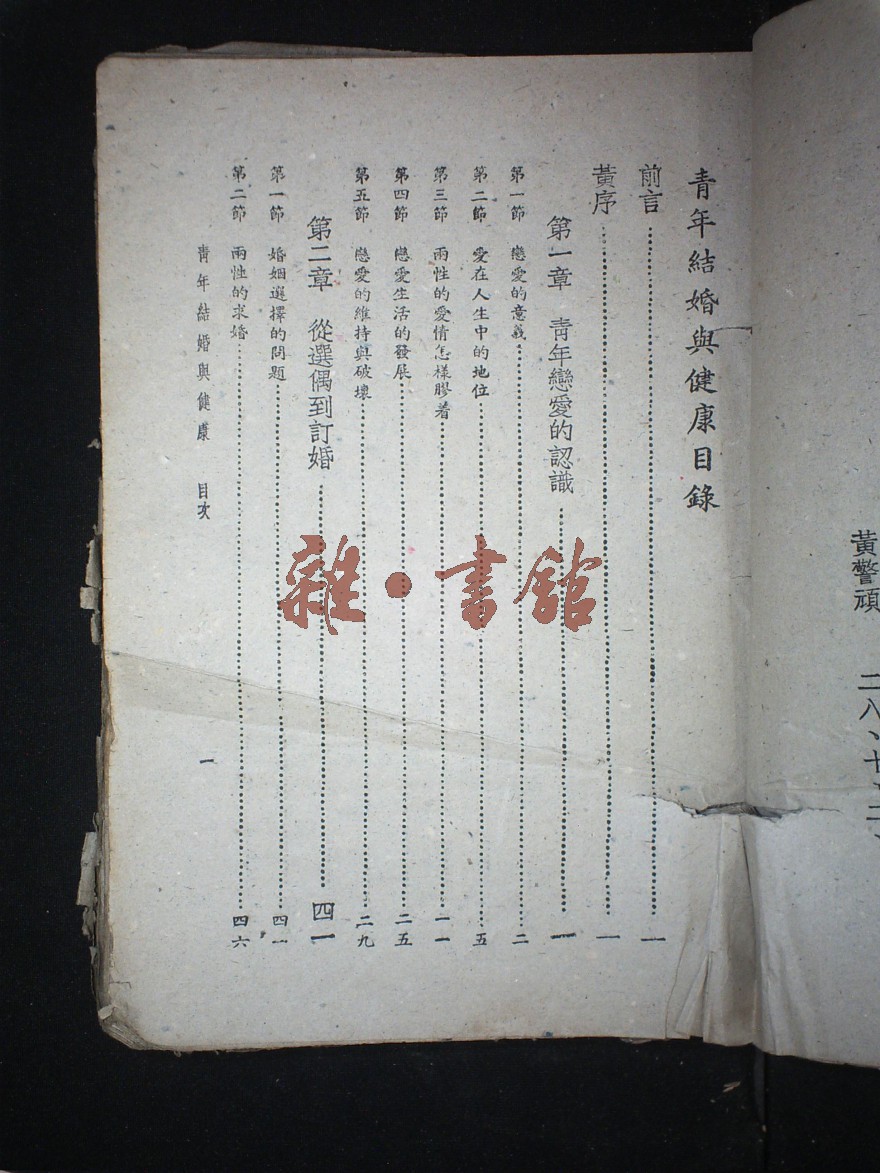 黃警頑 二八、十、二、
青年結婚與健康目錄
前言 一
黃序 一
第一章 青年戀愛的認識 一
第一節 戀愛的意義 二
第二節 愛在人生中的地位 五
第三節 兩性的愛情怎樣膠着 一一
第四節 戀愛生活的發展 二五
第五節 戀愛的維持與破壞 二九
第二章 從選偶到訂婚 四一
第一節 婚姻選擇的問題 四一
第二節 兩性的求婚 四六
青年結婚與健康 目次 一
雜·書館